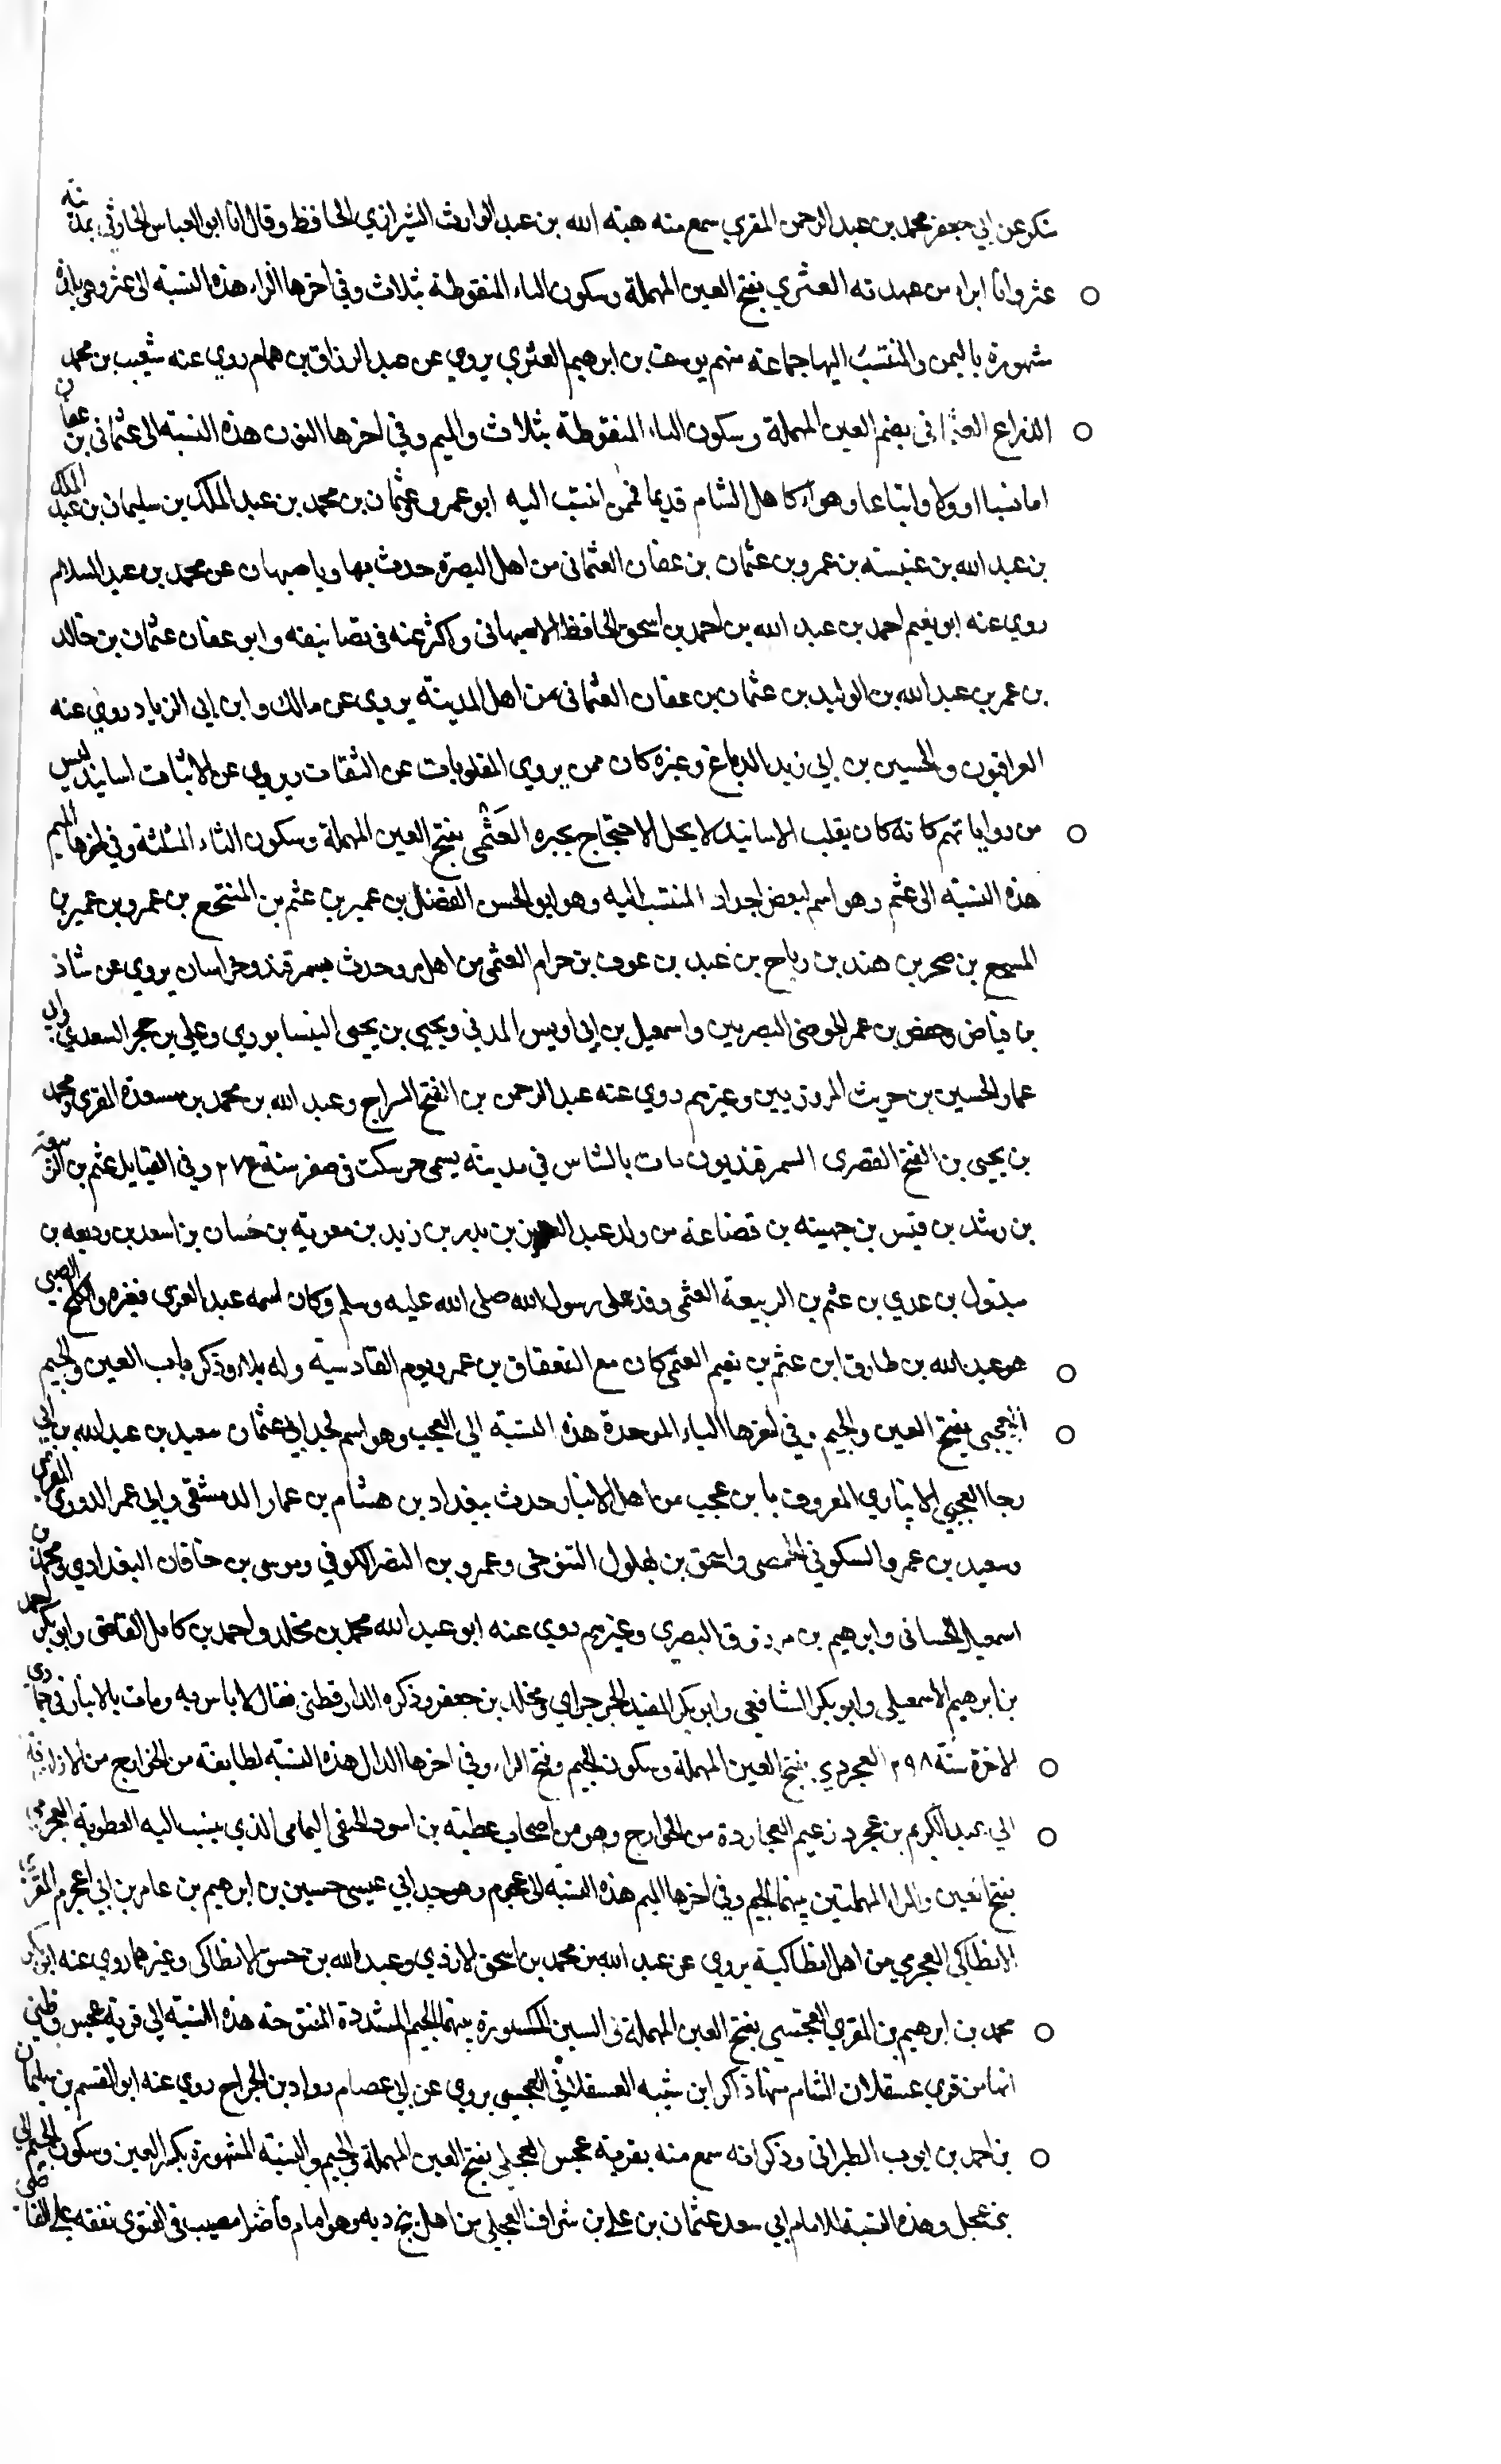 شكر عن ابي جعفر محمد بن عبد الرحمن المقري سمع منه هبة الله بن عبد الوارث الشيرازي الحافظ وقال انا ابو العباس بمدينة
عثر وانا ابرا من عهدته العثري بفتح العين المهملة وسكون الثاء المنقوطة بثلاث وفي اخرها الراء هذه النسبة الى عثر وهي
مشهورة باليمن والمنتسب اليها جماعة منهم يوسف بن ابرهيم العثري يروي عن عبد الرزاق بن همام روي عنه شعيب بن محمد
الذراع العثماني بضم العين المهملة وسكون الثاء المنقوطة بثلاث والميم وفي اخرها النون هذه النسبة الى عثمان بن عفان
اما نسبا او ولا واتباعا وهواء كاهل الشام قديما فمن انتسب اليه ابو عمرو عثمان بن محمد بن عبد الملك بن سليمان بن عبد الملك
بن عبد الله بن عنبسة بن عمرو بن عثمان بن عفان العثماني من اهل البصرة حدث بها وباصبهان عن محمد بن عبد السلام
روي عنه ابو نعيم احمد بن عبد الله بن احمد بن اسحق الحافظ الاصبهاني واكثر عنه في تصانيفه وابو عفان عثمان بن خالد
بن عمر بن عبد الله بن الوليد بن عثمان بن عفان العثماني من اهل المدينة يروي عن مالك وابن ابي الزناد روي عنه
العراقيون والحسين بن ابي زيد الدباغ وغيره كان ممن يروي المقلوبات عن الثقات ويروي عن الاثبات اسانيد ليس
من رواياتهم كانه كان يقلب الاسانيد لا يحل الاحتجاج بخبره العَثْمي بفتح العين المهملة وسكون الثاء المثلثة وفي اخرها الميم
هذه النسبة الى عثم وهو اسم لبعض اجداد المنتسب اليه وهو ابو الحسن الفضل بن عمير بن عثم بن المنتجع بن عمرو بن عمير بن
المسبح بن صخر بن هند بن رباح بن عبد بن عوف بن حرام العثمي من اهل مرو حدث بسمرقند وخراسان يروي عن شاذ
بن فياض وحفص بن عمر الحوضي البصريين واسمعيل بن ابي اويس المدني ويحيى بن يحيى النيسابوري وعلي بن حجر السعدي وابي
عمار الحسين بن حريث المروزيين وغيرهم روي عنه عبد الرحمن بن الفتح السراج وعبد الله بن محمد بن مسعدة المقري ومحمد
بن يحيى بن الفتح القصري السمرقنديون مات بالشاس في مدينة يسمى خرسكت في صفر سنة ٢٧٤ وفي القبايل عثم بن الربعة
بن رشد بن قيس بن جهينة بن قضاعة من ولد عبد العزيز بن بدر بن زيد بن معوية بن خسان بن اسعد بن وديعة بن
مبذول بن عدي بن عثم بن الربيعة العثمي وفد على رسول الله صلى الله عليه وسلم وكان اسمه عبد العزى فغيره والكلح الضبي
هو عبد الله بن طارق ابن عثم بن نعيم العثمي كان مع القعقاع بن عمرو يوم القادسية وله بلاء وذكر باب العين والجيم
العجبي بفتح العين والجيم وفي اخرها الباء الموحدة هذه النسبة الى العجب وهو اسم لجد ابي عثمان سعيد بن عبد الله بن ابي
رجا العجبي الانباري المعروف بابن عجب من اهل الانبار حدث ببغداد بن هشام بن عمار الدمشقي وابي عمر الدوري المقري
وسعيد بن عمرو السكوني الحمصي واسحق بن بهلول التنوخي وعمرو بن النضر الكوفي وموسى بن خاقان البغدادي ومحمد بن
اسمعيل الحساني وابرهيم بن مرزوق البصري وغيرهم روي عنه ابو عبد الله محمد بن مخلد واحمد بن كامل القاضي وابو بكر احمد
بن ابرهيم الاسمعيلي وابو بكر الشافعي وابو بكر المفيد الجرجراي ومخلد بن جعفر وذكره الدارقطني فقال لا باس به ومات بالانبار في جمادي
الاخرة سنة ٢٩٨ العجردي بفتح العين المهملة وسكون الجيم وفتح الراء وفي اخرها الدال هذه النسبة لطايفة من الخوارج من
الي عبد الكريم بن عجرد زعيم العجاردة من الخوارج وهو من اصحاب عطية بن اسود الحنفي اليمامي الذي ينسب اليه العطوية العجرمي
بفتح العين والراء المهملتين بينهما الجيم وفي اخرها الميم هذه النسبة الى عجرم وهو جد ابي عيسى حسين بن ابرهيم بن عامر بن ابي عجرم المقري
الانطاكي العجرمي من اهل انطاكية يروي عن عبد الله بن محمد بن اسحق الازدي وعبد الله بن حسن الانطاكي وغيرهما روي عنه ابو بكر
محمد بن ابرهيم بن المقري العجّسي بفتح العين المهملة في السين المكسورة بينهما الجيم المشددة المفتوحة هذه النسبة الي قرية عجس وظني
انها من قري عسقلان الشام منها ذاكر ابن شيبه العسقلاني العجسي يروي عن ابي عصام رواد بن الجراح روي عنه ابو القسم بن سليمان
بن احمد بن ايوب الطبراني وذكر انه سمع منه بقرية عجس العجلي بفتح العين المهملة والجيم والنسبة المشهورة بكسر العين وسكون الجيم الي
بن عجل وهذه النسبة للامام ابي سعد عثمان بن علي بن شراف العجلي من اهل بنج ديه وهو امام فاضل مصيب في الفتوي تفقه علي القاضي